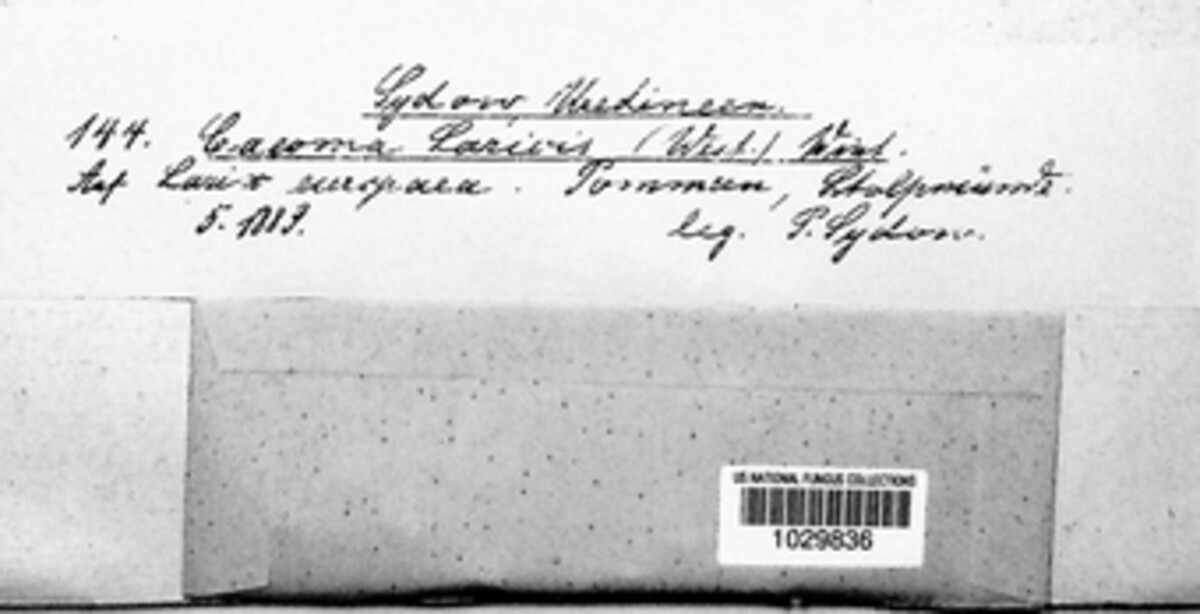 Sydow, Uredineen.
144. Caeoma Laricis (West.) Wint.
Auf Larix europaea. Pommern, Stolpmünde.
5. 1883. leg. P. Sydow.
US NATIONAL FUNGUS COLLECTIONS
1029836